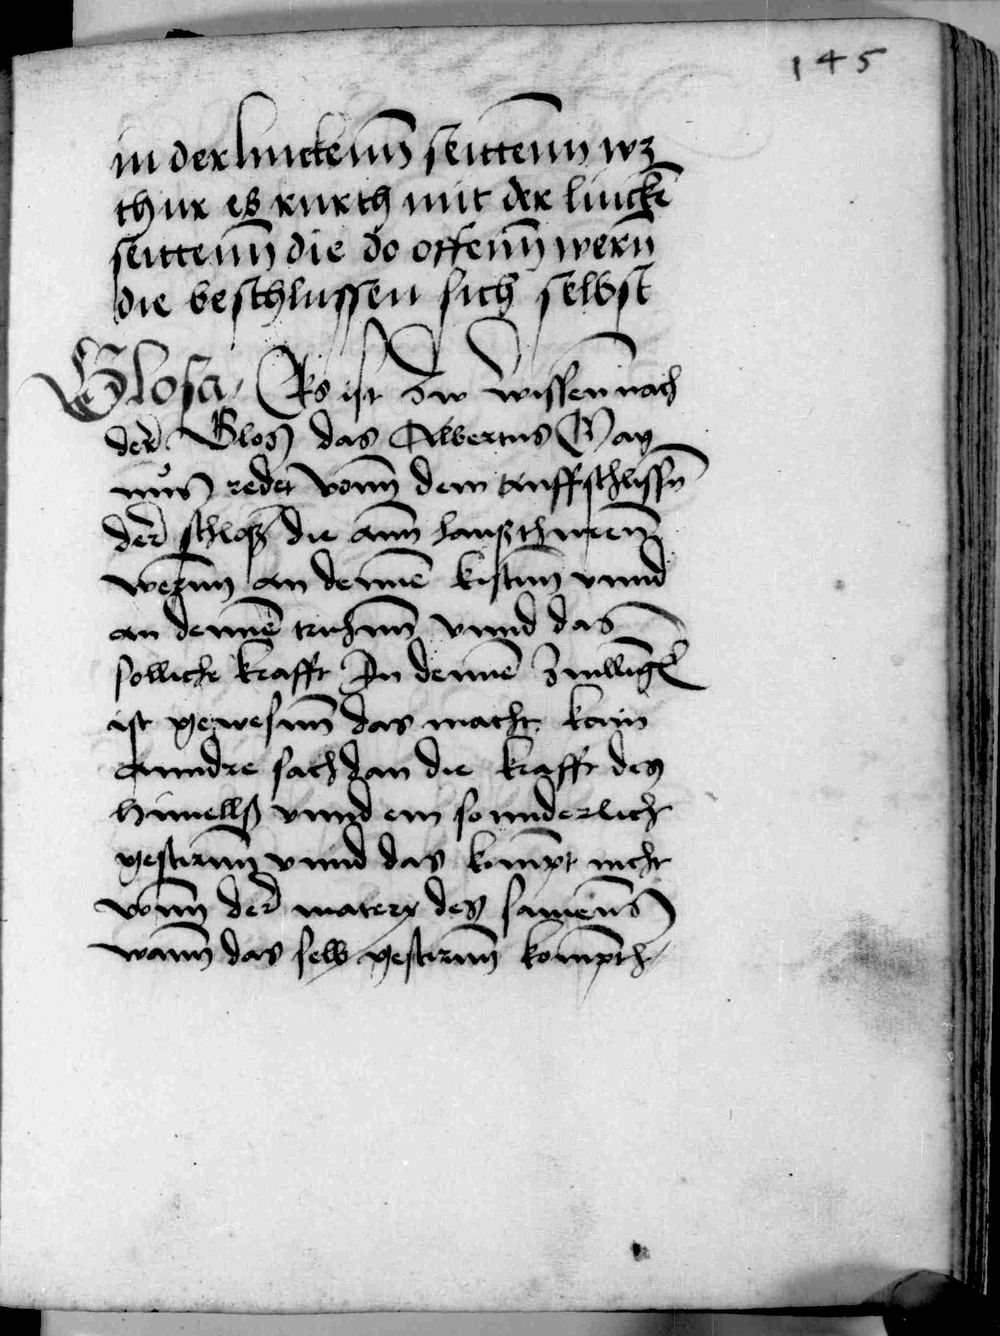 145
in der linckenn seittenn wz
thur es rurth mit der linckē
seittenn die do offenn wern
die beschlussen sich selbst
Glosa Es ist zw wissen nach
der Glos das Albertus Mag
nus redet vonn dem auffschlissn
der schloss die ann haußthurenn
werenn an dennē kistenn vnnd
an dennē truhenn vnnd das
solliche krafft In dennē zwilling
ist gewesenn das macht kain
anndre sach dan die krafft des
himells vnnd ein sonnderlich
gestirnn vnnd das kompt nicht
vonn der matery des samens
wann das selb gestirnn kompth